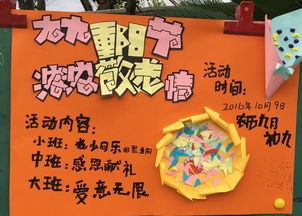 九九重阳节
浓浓敬老情
活动时间:
2016年10月9日
农历九月初九
活动内容:
小班:老少同乐
中班:感恩献礼
大班:爱意无限